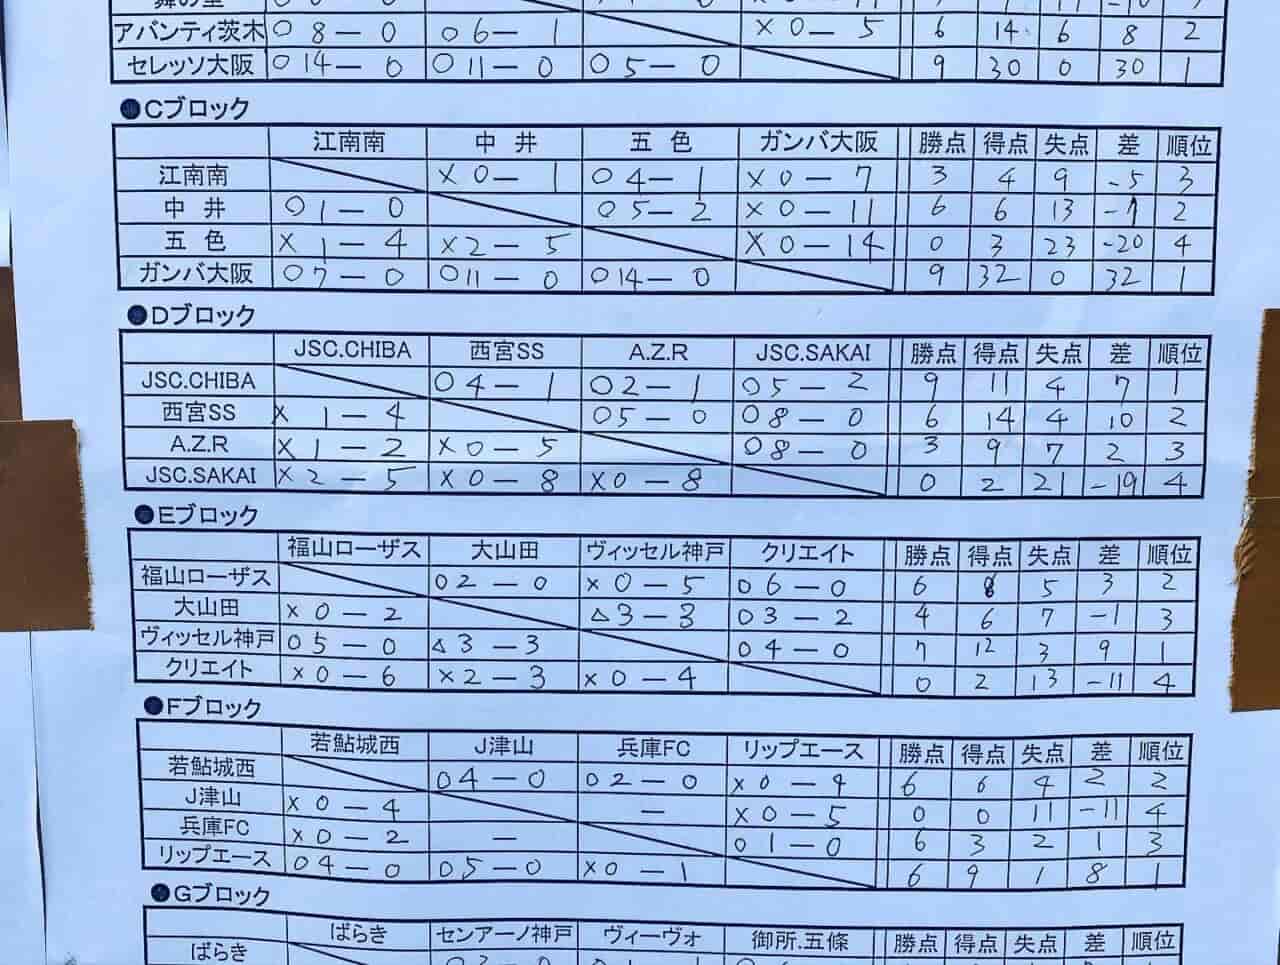 アバンティ茨木 ○ 8 - 0 ○ 6 - 1 × 0 - 5 6 14 6 8 2
セレッソ大阪 ○ 14 - 0 ○ 11 - 0 ○ 5 - 0 9 30 0 30 1
●Cブロック
江南南 中 井 五 色 ガンバ大阪 勝点 得点 失点 差 順位
江南南 × 0 - 1 ○ 4 - 1 × 0 - 7 3 4 9 -5 3
中 井 ○ 1 - 0 ○ 5 - 2 × 0 - 11 6 6 13 -7 2
五 色 × 1 - 4 × 2 - 5 × 0 - 14 0 3 23 -20 4
ガンバ大阪 ○ 7 - 0 ○ 11 - 0 ○ 14 - 0 9 32 0 32 1
●Dブロック
JSC.CHIBA 西宮SS A.Z.R JSC.SAKAI 勝点 得点 失点 差 順位
JSC.CHIBA ○ 4 - 1 ○ 2 - 1 ○ 5 - 2 9 11 4 7 1
西宮SS × 1 - 4 ○ 5 - 0 ○ 8 - 0 6 14 4 10 2
A.Z.R × 1 - 2 × 0 - 5 ○ 8 - 0 3 9 7 2 3
JSC.SAKAI × 2 - 5 × 0 - 8 × 0 - 8 0 2 21 -19 4
●Eブロック
福山ローザス 大山田 ヴィッセル神戸 クリエイト 勝点 得点 失点 差 順位
福山ローザス ○ 2 - 0 × 0 - 5 ○ 6 - 0 6 8 5 3 2
大山田 × 0 - 2 △ 3 - 3 ○ 3 - 2 4 6 7 -1 3
ヴィッセル神戸 ○ 5 - 0 △ 3 - 3 ○ 4 - 0 7 12 3 9 1
クリエイト × 0 - 6 × 2 - 3 × 0 - 4 0 2 13 -11 4
●Fブロック
若鮎城西 J津山 兵庫FC リップエース 勝点 得点 失点 差 順位
若鮎城西 ○ 4 - 0 ○ 2 - 0 × 0 - 4 6 6 4 2 2
J津山 × 0 - 4 - × 0 - 5 0 0 11 -11 4
兵庫FC × 0 - 2 - ○ 1 - 0 6 3 2 1 3
リップエース ○ 4 - 0 ○ 5 - 0 × 0 - 1 6 9 1 8 1
●Gブロック
ばらき センアーノ神戸 ヴィーヴォ 御所.五條 勝点 得点 失点 差 順位
ばらき